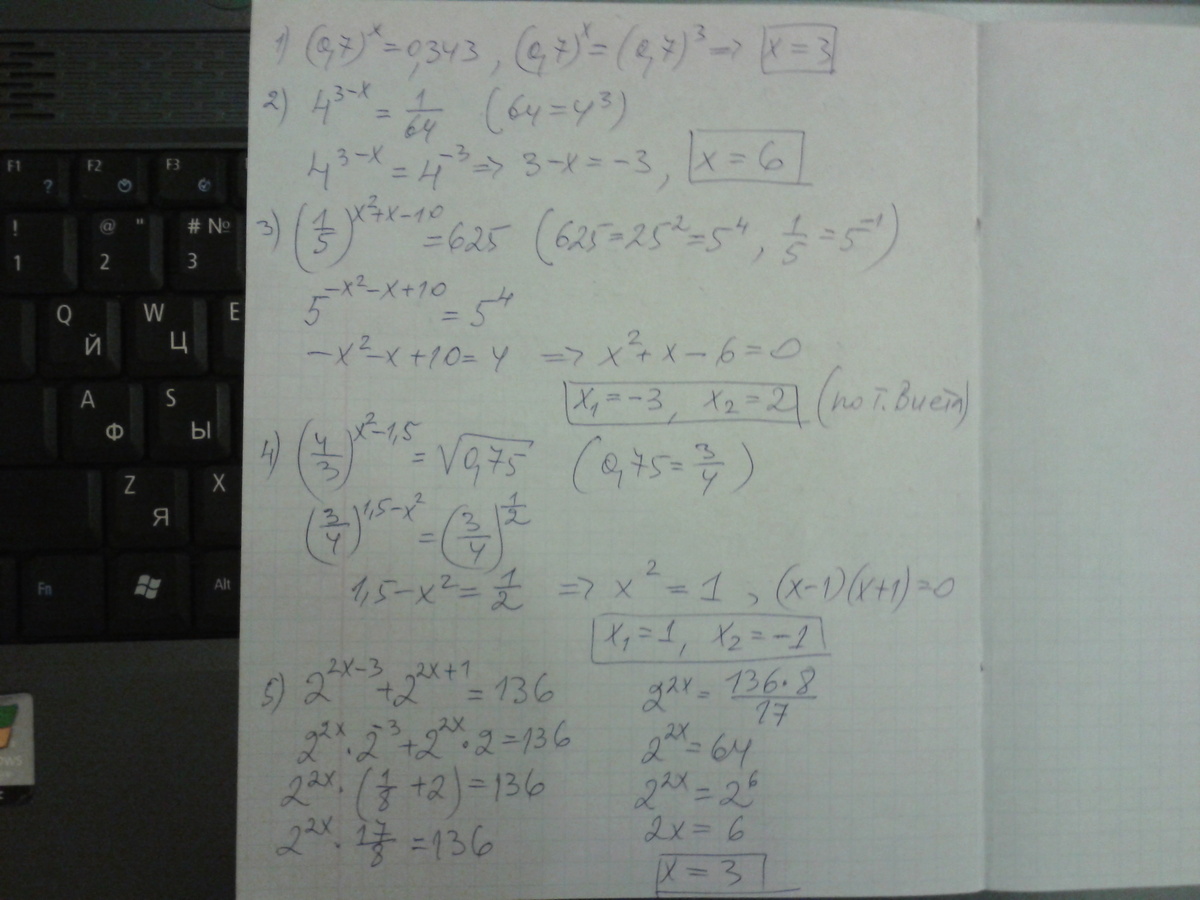 1) (0,7)^x = 0,343, (0,7)^x = (0,7)^3 => x = 3
2) 4^{3-x} = 1/64 (64 = 4^3)
4^{3-x} = 4^{-3} => 3-x = -3, x = 6
3) (1/5)^{x^2+x-10} = 625 (625 = 25^2 = 5^4, 1/5 = 5^{-1})
5^{-x^2-x+10} = 5^4
-x^2-x+10 = 4 => x^2+x-6 = 0
x_1 = -3, x_2 = 2 (по т. Виета)
4) (4/3)^{x^2-1,5} = √0,75 (0,75 = 3/4)
(3/4)^{1,5-x^2} = (3/4)^{1/2}
1,5-x^2 = 1/2 => x^2 = 1, (x-1)(x+1) = 0
x_1 = 1, x_2 = -1
5) 2^{2x-3} + 2^{2x+1} = 136
2^{2x} · 2^{-3} + 2^{2x} · 2 = 136
2^{2x} · (1/8 + 2) = 136
2^{2x} · 17/8 = 136
2^{2x} = 136·8/17
2^{2x} = 64
2^{2x} = 2^6
2x = 6
x = 3
F1 ?
F2
F3
! 1
@ " 2
# № 3
Q Й
W Ц
E
A Ф
S Ы
Z Я
X
Fn
Alt